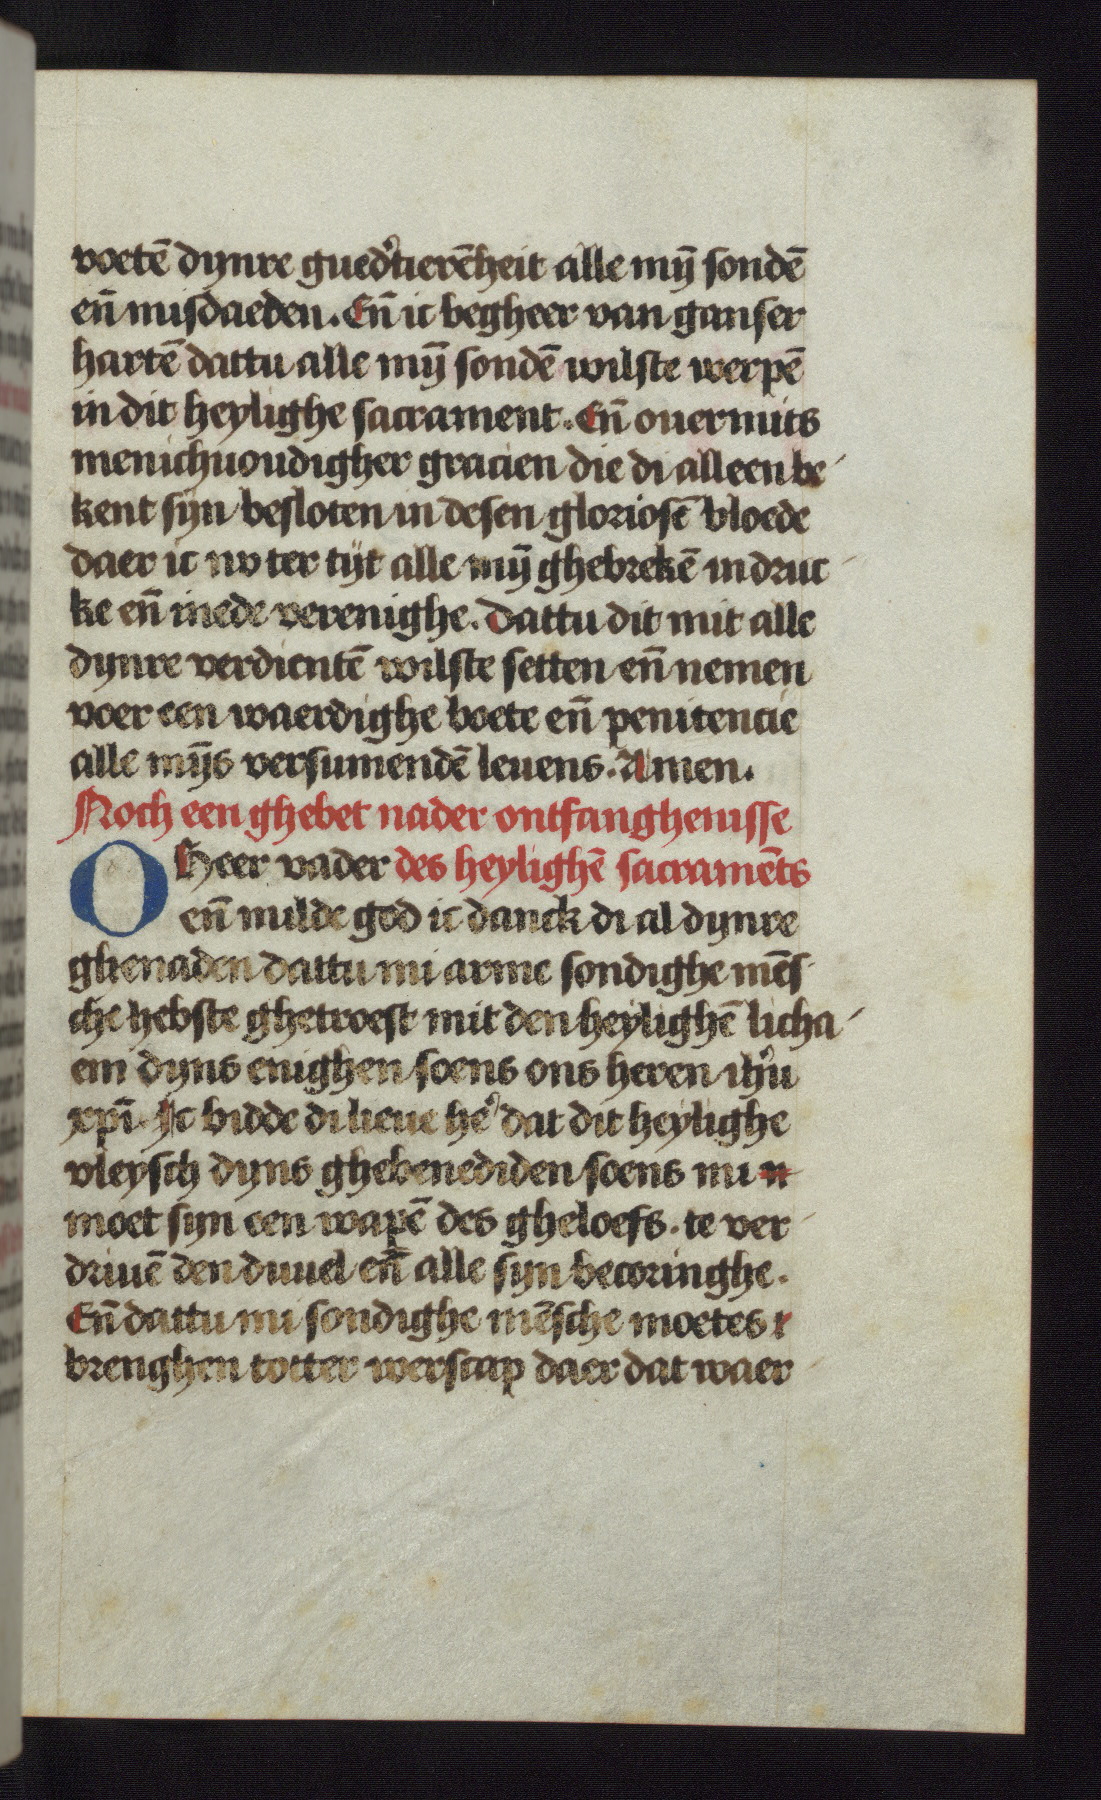 voetē dynre gued'tierēheit alle mȳ sondē
eñ misdaeden. Eñ ic begheer van ganser
hartē dattu alle mȳ sondē wilste werpē
in dit heylighe sacrament. Eñ ouermits
menichuoudigher gracien die di alleen be
kent syn besloten in desen gloriosē bloede
daer ic nv ter tijt alle mȳ ghebrekē in druc
ke eñ mede verenighe. Dattu dit mit alle
dynre verdientē wilste setten eñ nemen
voer een waerdighe boete eñ penitencie
alle mȳs versumendē leuens. Amen.
Noch een ghebet nader ontfanghenisse
O Heer vader des heylighē sacramēts
eñ milde god ic danck di al dynre
ghenaden dattu mi arme sondighe mēs
che hebste ghetroest mit den heylighē licha
em dyns enighen soens ons heren ihū
xpī. Ic bidde di lieue hē' dat dit heylighe
vleysch dyns ghebenediden soens mi n
moet syn een wapē des gheloefs. te ver
driuē den duuel eñ alle syn becoringhe.
Eñ dattu mi sondighe mēsche moetes r
brenghen totter werscap daer dat waer